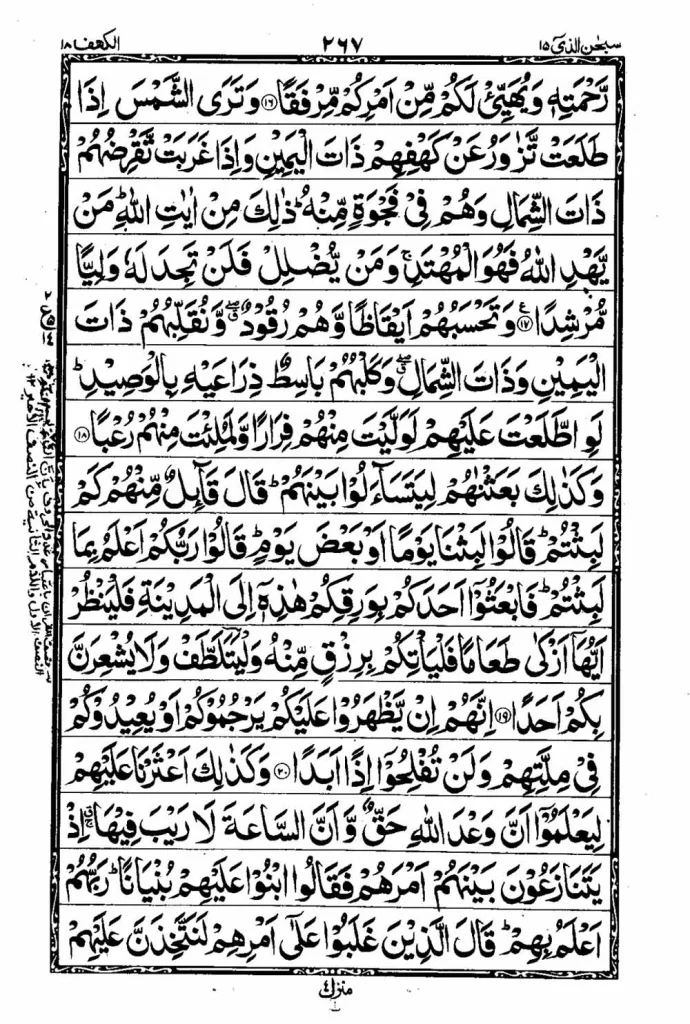 سبحٰن الذيٓ ١٥
٢٦٧
الكهف ١٨
رَّحْمَتِهٖ وَيُهَيِّئْ لَكُمْ مِّنْ اَمْرِكُمْ مِّرْفَقًا ١٦ وَتَرَى الشَّمْسَ اِذَا
طَلَعَتْ تَّزٰوَرُ عَنْ كَهْفِهِمْ ذَاتَ الْيَمِيْنِ وَاِذَا غَرَبَتْ تَّقْرِضُهُمْ
ذَاتَ الشِّمَالِ وَهُمْ فِيْ فَجْوَةٍ مِّنْهُ ؕ ذٰلِكَ مِنْ اٰيٰتِ اللّٰهِ ؕ مَنْ
يَّهْدِ اللّٰهُ فَهُوَ الْمُهْتَدِ ۚ وَمَنْ يُّضْلِلْ فَلَنْ تَجِدَ لَهٗ وَلِيًّا
مُّرْشِدًا ١٧ وَتَحْسَبُهُمْ اَيْقَاظًا وَّهُمْ رُقُوْدٌ ۖ وَّنُقَلِّبُهُمْ ذَاتَ
الْيَمِيْنِ وَذَاتَ الشِّمَالِ ۖ وَكَلْبُهُمْ بَاسِطٌ ذِرَاعَيْهِ بِالْوَصِيْدِ ؕ
لَوِ اطَّلَعْتَ عَلَيْهِمْ لَوَلَّيْتَ مِنْهُمْ فِرَارًا وَّلَمُلِئْتَ مِنْهُمْ رُعْبًا ١٨
وَكَذٰلِكَ بَعَثْنٰهُمْ لِيَتَسَآءَلُوْا بَيْنَهُمْ ؕ قَالَ قَآئِلٌ مِّنْهُمْ كَمْ
لَبِثْتُمْ ؕ قَالُوْا لَبِثْنَا يَوْمًا اَوْ بَعْضَ يَوْمٍ ؕ قَالُوْا رَبُّكُمْ اَعْلَمُ بِمَا
لَبِثْتُمْ ؕ فَابْعَثُوْٓا اَحَدَكُمْ بِوَرِقِكُمْ هٰذِهٖٓ اِلَى الْمَدِيْنَةِ فَلْيَنْظُرْ
اَيُّهَآ اَزْكٰى طَعَامًا فَلْيَاْتِكُمْ بِرِزْقٍ مِّنْهُ وَلْيَتَلَطَّفْ وَلَا يُشْعِرَنَّ
بِكُمْ اَحَدًا ١٩ اِنَّهُمْ اِنْ يَّظْهَرُوْا عَلَيْكُمْ يَرْجُمُوْكُمْ اَوْ يُعِيْدُوْكُمْ
فِيْ مِلَّتِهِمْ وَلَنْ تُفْلِحُوْٓا اِذًا اَبَدًا ٢٠ وَكَذٰلِكَ اَعْثَرْنَا عَلَيْهِمْ
لِيَعْلَمُوْٓا اَنَّ وَعْدَ اللّٰهِ حَقٌّ وَّاَنَّ السَّاعَةَ لَا رَيْبَ فِيْهَا ۚ اِذْ
يَتَنَازَعُوْنَ بَيْنَهُمْ اَمْرَهُمْ فَقَالُوا ابْنُوْا عَلَيْهِمْ بُنْيَانًا ؕ رَبُّهُمْ
اَعْلَمُ بِهِمْ ؕ قَالَ الَّذِيْنَ غَلَبُوْا عَلٰٓى اَمْرِهِمْ لَنَتَّخِذَنَّ عَلَيْهِمْ
منزل ٤